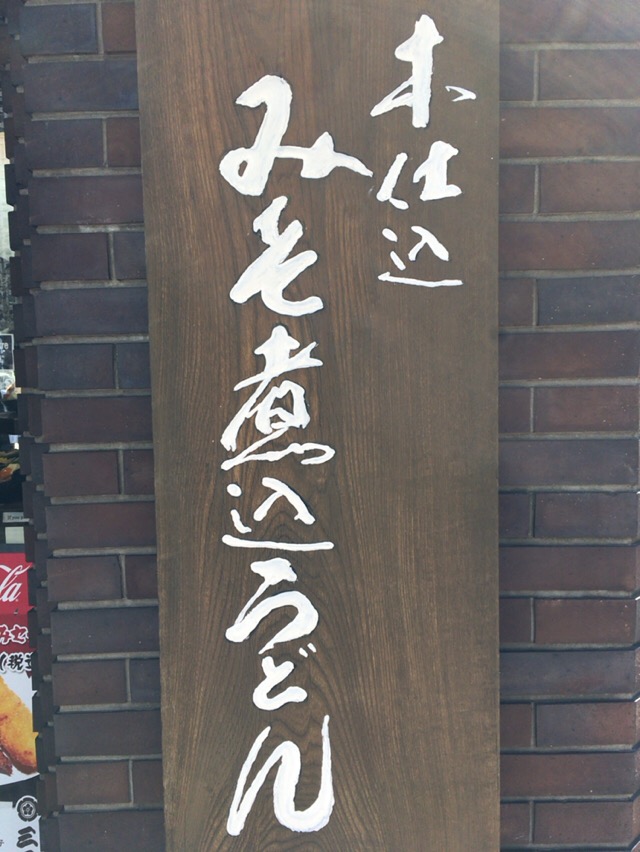 本仕込
みそ煮込うどん